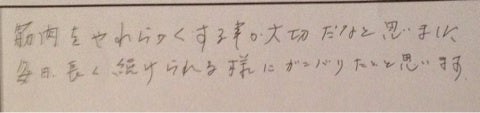 筋肉をやわらかくする事が大切だなと思いました
毎日長く続けられる様にガンバリたいと思います